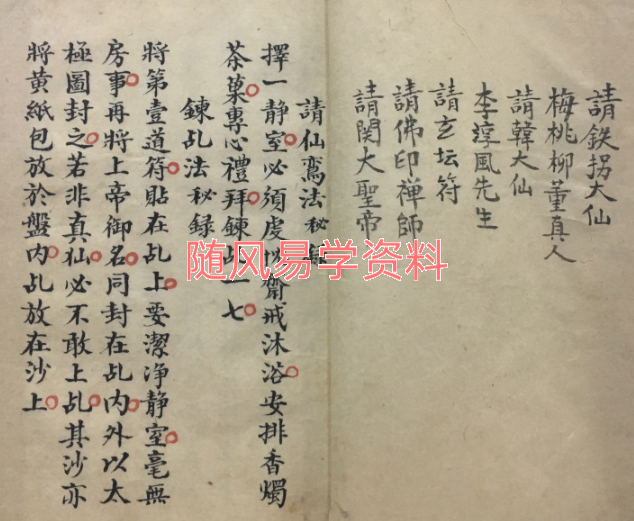 請鉄拐大仙
梅桃柳董真人
請韓大仙
李淳風先生
請玄坛符
請佛印禅師
請関大聖帝
請仙鸞法秘録
擇一静室必須虔以齋戒沐浴安排香燭
茶菓專心禮拜鍊乩一七
鍊乩法秘録
將第壹道符貼在乩上要潔净静室毫無
房事再將上帝御名同封在乩内外以太
極圖封之若非真仙必不敢上乩其沙亦
將黄紙包放於盤内乩放在沙上
随风易学资料